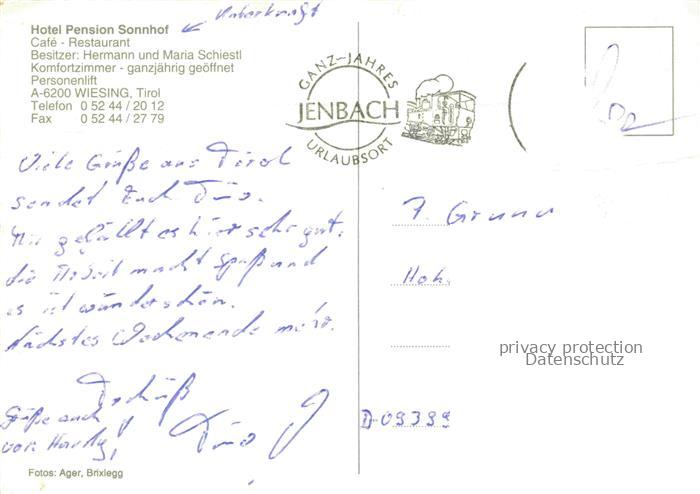 Unterkunft
Hotel Pension Sonnhof
Café - Restaurant
Besitzer: Hermann und Maria Schiestl
Komfortzimmer - ganzjährig geöffnet
Personenlift
A-6200 WIESING, Tirol
Telefon 0 52 44 / 20 12
Fax 0 52 44 / 27 79
GANZ-JAHRES
JENBACH
URLAUBSORT
Viele Grüße aus Tirol
sendet Euch Timo.
Mir gefällt es hier sehr gut,
die Arbeit macht Spaß und
es ist wunderschön.
Nächstes Wochenende mehr.
Tschüß
Timo
Grüße auch
von Hardy!
F. Grund
Hoh.
D-09399
privacy protection
Datenschutz
Fotos: Ager, Brixlegg